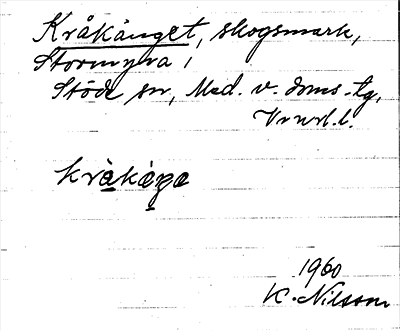 Kråkänget, skogsmark,
Stormyra i
Stöde sn, Med. v. doms. tg,
Vnrl. l.
kràkánge
1960
K. Nilsson